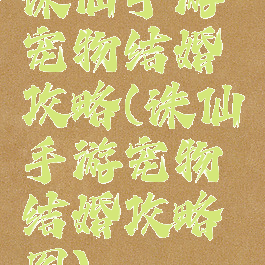 诛仙手游
宠物结婚
攻略(诛仙
手游宠物
结婚攻略
图)